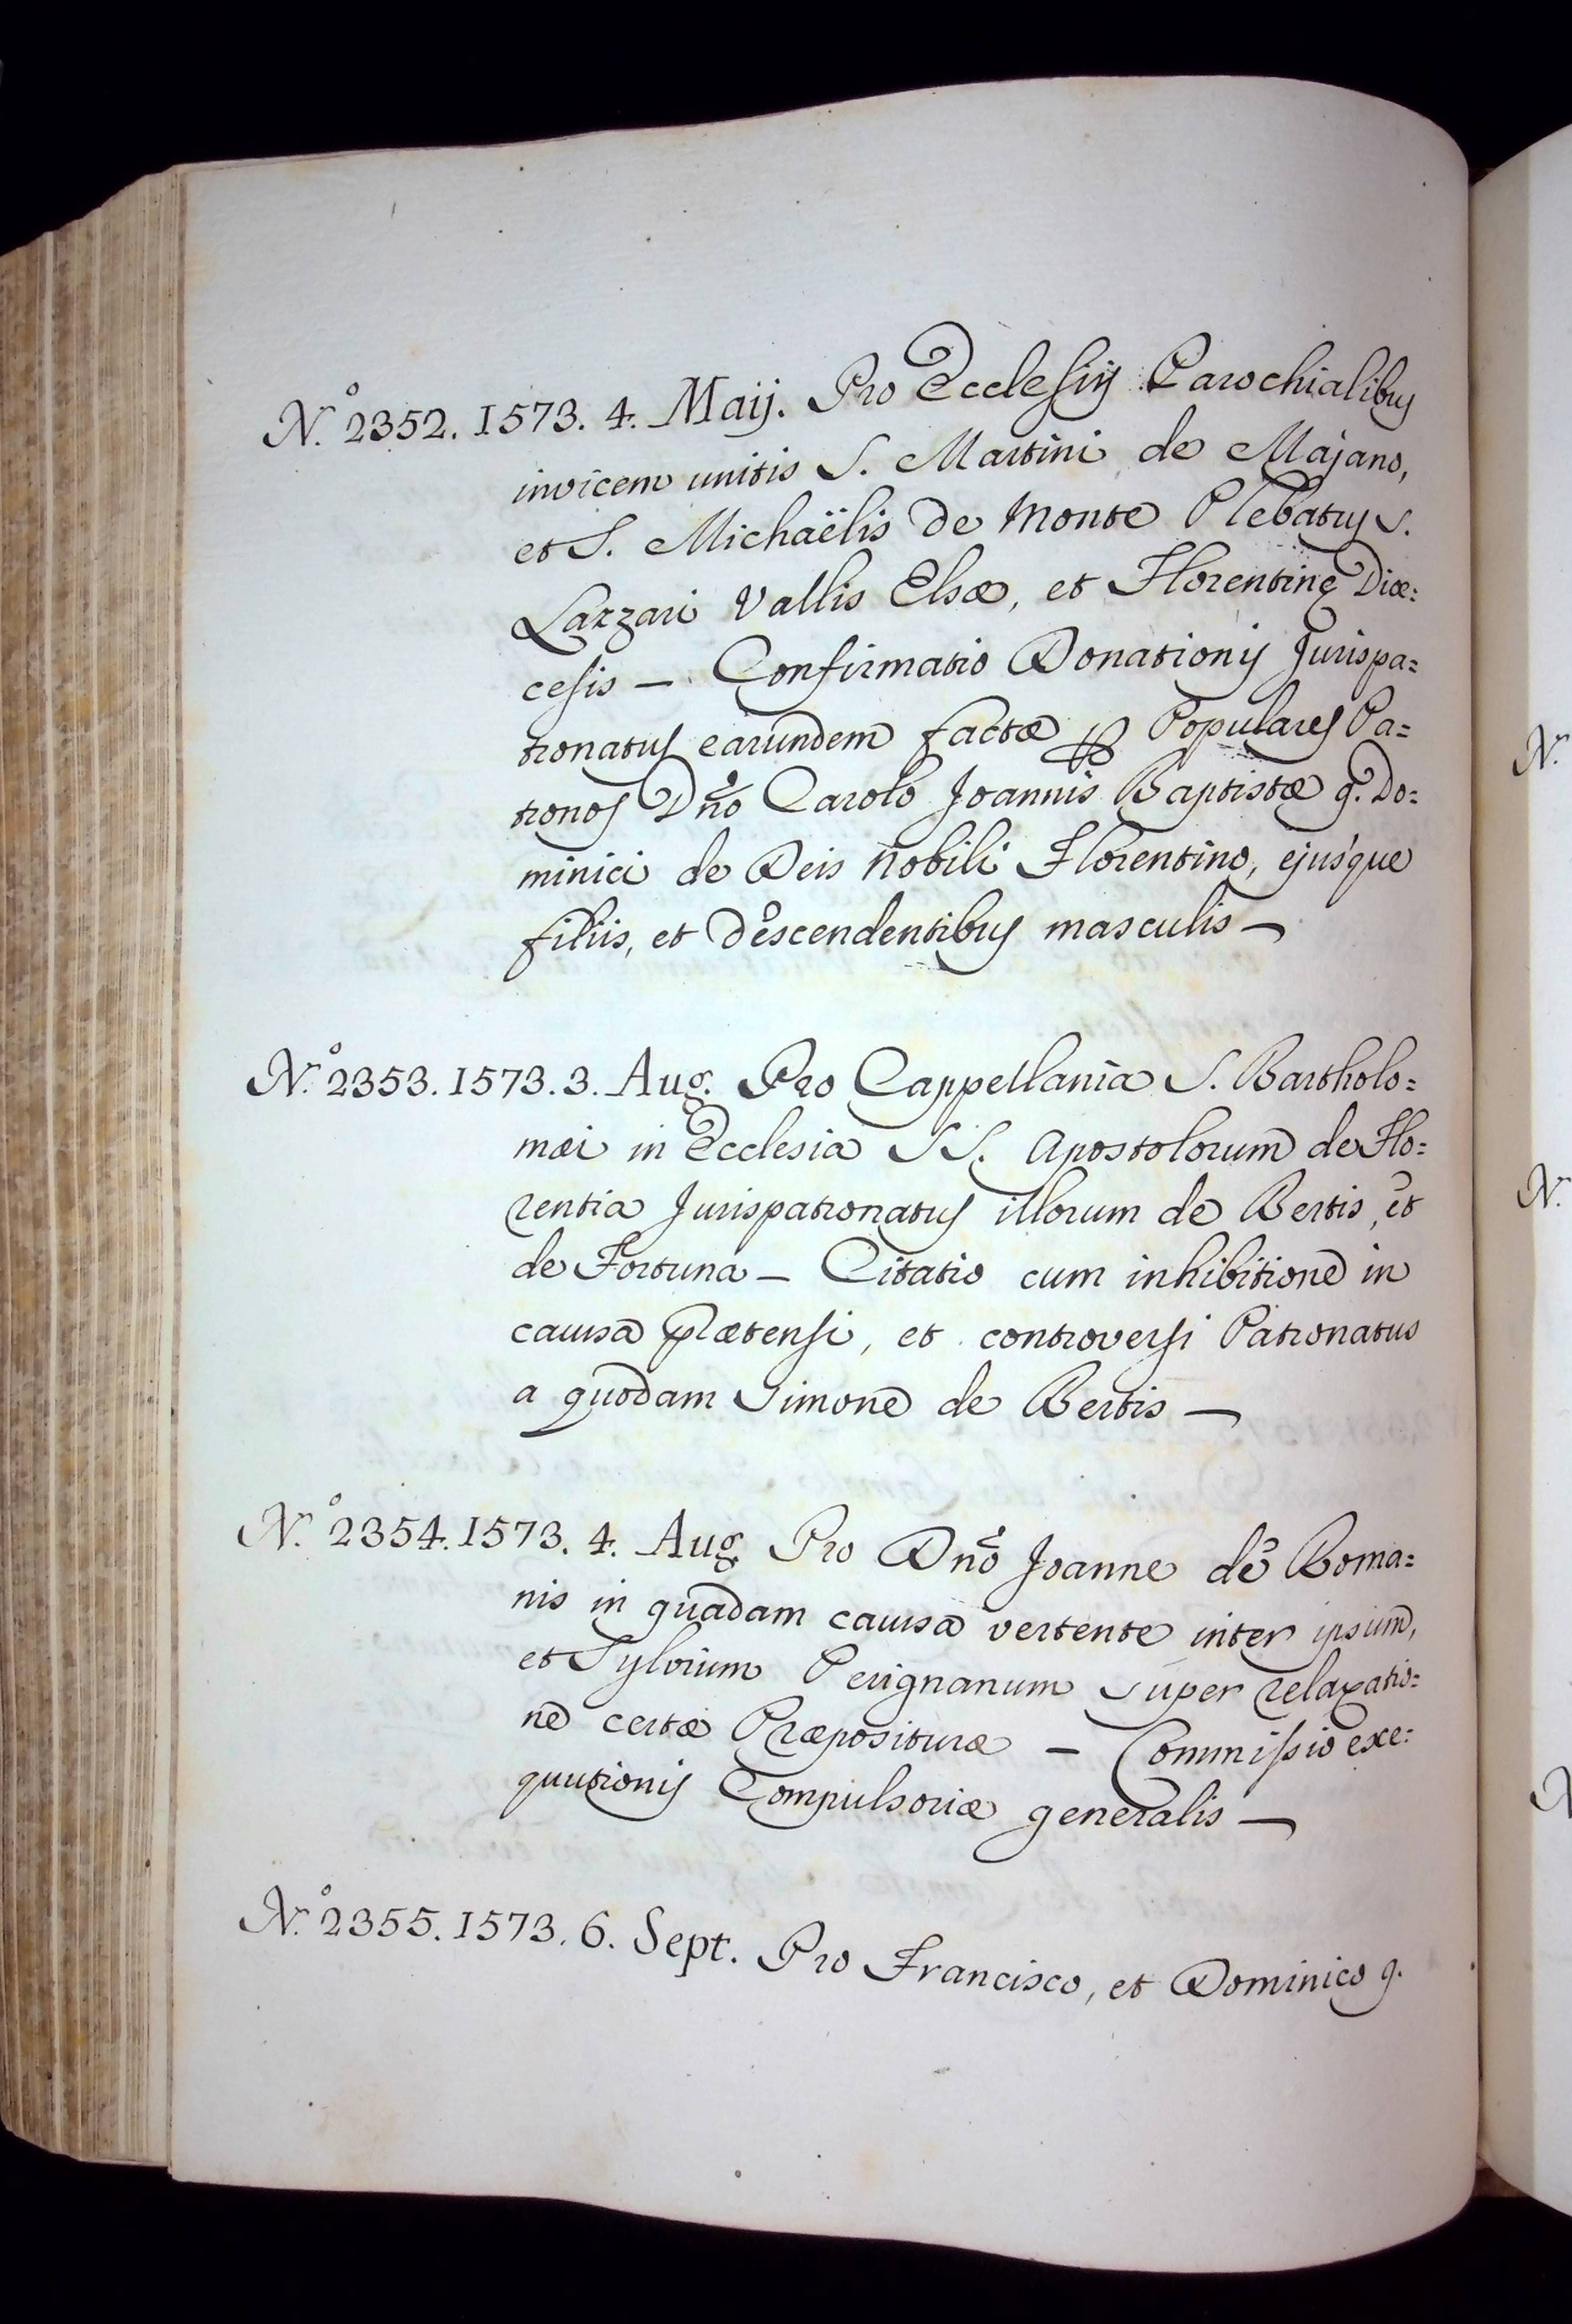 N.º 2352. 1573. 4. Maij. Pro Ecclesiis Parochialibus
invicem unitis S. Martini de Majano,
et S. Michaëlis de Monte Plebatus S.
Lazzari Vallis Elsæ, et Florentinę Diœ=
cesis — Confirmatio Donationis Jurispa=
tronatus earundem factæ ꝑ Populares Pa=
tronos Dño Carolo Joannis Baptistæ q. Do=
minici de Deis Nobili Florentino, ejusque
filiis, et descendentibus masculis —
N.º 2353. 1573. 3. Aug. Pro Cappellania S. Bartholo=
mæi in Ecclesia SS. Apostolorum de Flo=
rentia Jurispatronatus illorum de Bertis, et
de Fortuna — Citatio cum inhibitione in
causa prætensi, et controversi Patronatus
a quodam Simone de Bertis —
N.º 2354. 1573. 4. Aug. Pro Dño Joanne de Roma=
nis in quadam causa vertente inter ipsum,
et Sylvium Perignanum super relaxatio=
ne certæ Præpositure — Commissio exe=
quutionis Compulsoriæ generalis —
N.º 2355. 1573. 6. Sept. Pro Francisco, et Dominico q.
N.
N.
N